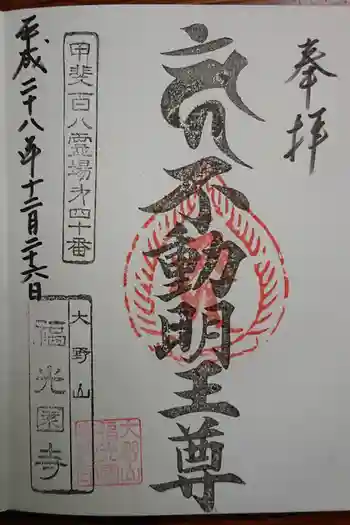 奉拝
不動明王尊
甲斐百八霊場第四十番
平成二十八年十二月二十六日
大野山
福光園寺
大野山
福光園